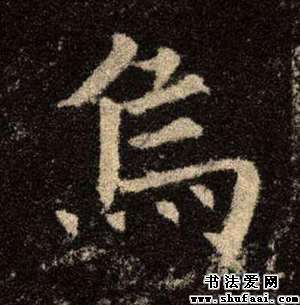 烏
书法爱网
www.shufaai.com